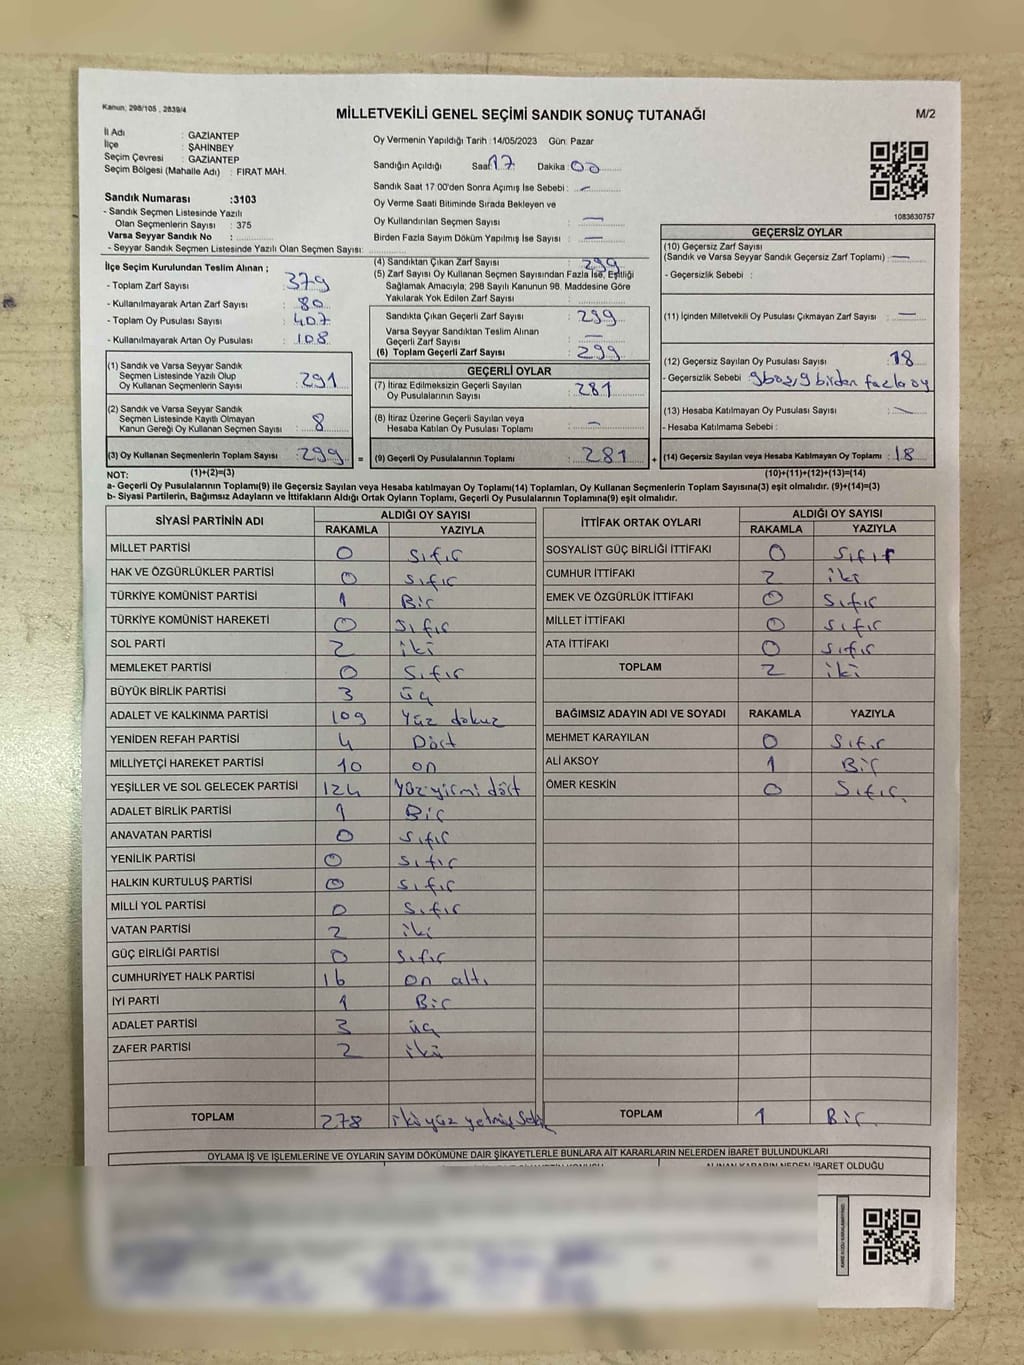 Kanun; 298/105 , 2839/4
MİLLETVEKİLİ GENEL SEÇİMİ SANDIK SONUÇ TUTANAĞI
M/2
İl Adı : GAZİANTEP
İlçe : ŞAHİNBEY
Seçim Çevresi : GAZİANTEP
Seçim Bölgesi (Mahalle Adı) : FIRAT MAH.
Oy Vermenin Yapıldığı Tarih : 14/05/2023 Gün: Pazar
Sandığın Açıldığı Saat 17 Dakika : 00
Sandık Saat 17:00'den Sonra Açımış İse Sebebi : —
Oy Verme Saati Bitiminde Sırada Bekleyen ve
Oy Kullandırılan Seçmen Sayısı : —
Birden Fazla Sayım Döküm Yapılmış İse Sayısı : —
1083630757
Sandık Numarası :3103
- Sandık Seçmen Listesinde Yazılı
Olan Seçmenlerin Sayısı : 375
Varsa Seyyar Sandık No :
- Seyyar Sandık Seçmen Listesinde Yazılı Olan Seçmen Sayısı:
İlçe Seçim Kurulundan Teslim Alınan ;
- Toplam Zarf Sayısı : 379
- Kullanılmayarak Artan Zarf Sayısı : 80
- Toplam Oy Pusulası Sayısı : 407
- Kullanılmayarak Artan Oy Pusulası : 108
(1) Sandık ve Varsa Seyyar Sandık
Seçmen Listesinde Yazılı Olup
Oy Kullanan Seçmenlerin Sayısı : 291
(2) Sandık ve Varsa Seyyar Sandık
Seçmen Listesinde Kayıtlı Olmayan
Kanun Gereği Oy Kullanan Seçmen Sayısı : 8
(3) Oy Kullanan Seçmenlerin Toplam Sayısı : 299 =
(1)+(2)=(3)
(4) Sandıktan Çıkan Zarf Sayısı : 299
(5) Zarf Sayısı Oy Kullanan Seçmen Sayısından Fazla İse, Eşitliği
Sağlamak Amacıyla; 298 Sayılı Kanunun 98. Maddesine Göre
Yakılarak Yok Edilen Zarf Sayısı :
Sandıkta Çıkan Geçerli Zarf Sayısı : 299
Varsa Seyyar Sandıktan Teslim Alınan
Geçerli Zarf Sayısı : —
(6) Toplam Geçerli Zarf Sayısı : 299
GEÇERLİ OYLAR
(7) İtiraz Edilmeksizin Geçerli Sayılan
Oy Pusulalarının Sayısı : 281
(8) İtiraz Üzerine Geçerli Sayılan veya
Hesaba Katılan Oy Pusulası Toplamı : —
(9) Geçerli Oy Pusulalarının Toplamı : 281 +
GEÇERSİZ OYLAR
(10) Geçersiz Zarf Sayısı
(Sandık ve Varsa Seyyar Sandık Geçersiz Zarf Toplamı) : —
- Geçersizlik Sebebi :
(11) İçinden Milletvekili Oy Pusulası Çıkmayan Zarf Sayısı : —
(12) Geçersiz Sayılan Oy Pusulası Sayısı : 18
- Geçersizlik Sebebi : 9 boş, 9 birden fazla oy
(13) Hesaba Katılmayan Oy Pusulası Sayısı : —
- Hesaba Katılmama Sebebi :
(14) Geçersiz Sayılan veya Hesaba Katılmayan Oy Toplamı : 18
(10)+(11)+(12)+(13)=(14)
NOT:
a- Geçerli Oy Pusulalarının Toplamı(9) ile Geçersiz Sayılan veya Hesaba katılmayan Oy Toplamı(14) Toplamları, Oy Kullanan Seçmenlerin Toplam Sayısına(3) eşit olmalıdır. (9)+(14)=(3)
b- Siyasi Partilerin, Bağımsız Adayların ve İttifakların Aldığı Ortak Oyların Toplamı, Geçerli Oy Pusulalarının Toplamına(9) eşit olmalıdır.
SİYASİ PARTİNİN ADI ALDIĞI OY SAYISI
RAKAMLA YAZIYLA
MİLLET PARTİSİ 0 Sıfır
HAK VE ÖZGÜRLÜKLER PARTİSİ 0 Sıfır
TÜRKİYE KOMÜNİST PARTİSİ 1 Bir
TÜRKİYE KOMÜNİST HAREKETİ 0 Sıfır
SOL PARTİ 2 iki
MEMLEKET PARTİSİ 0 Sıfır
BÜYÜK BİRLİK PARTİSİ 3 üç
ADALET VE KALKINMA PARTİSİ 109 Yüz dokuz
YENİDEN REFAH PARTİSİ 4 Dört
MİLLİYETÇİ HAREKET PARTİSİ 10 on
YEŞİLLER VE SOL GELECEK PARTİSİ 124 Yüz yirmi dört
ADALET BİRLİK PARTİSİ 1 Bir
ANAVATAN PARTİSİ 0 Sıfır
YENİLİK PARTİSİ 0 Sıfır
HALKIN KURTULUŞ PARTİSİ 0 Sıfır
MİLLİ YOL PARTİSİ 0 Sıfır
VATAN PARTİSİ 2 iki
GÜÇ BİRLİĞİ PARTİSİ 0 Sıfır
CUMHURİYET HALK PARTİSİ 16 on altı
İYİ PARTİ 1 Bir
ADALET PARTİSİ 3 üç
ZAFER PARTİSİ 2 iki
TOPLAM 278 iki yüz yetmiş sekiz
İTTİFAK ORTAK OYLARI ALDIĞI OY SAYISI
RAKAMLA YAZIYLA
SOSYALİST GÜÇ BİRLİĞİ İTTİFAKI 0 Sıfır
CUMHUR İTTİFAKI 2 iki
EMEK VE ÖZGÜRLÜK İTTİFAKI 0 Sıfır
MİLLET İTTİFAKI 0 Sıfır
ATA İTTİFAKI 0 Sıfır
TOPLAM 2 iki
BAĞIMSIZ ADAYIN ADI VE SOYADI RAKAMLA YAZIYLA
MEHMET KARAYILAN 0 Sıfır
ALİ AKSOY 1 Bir
ÖMER KESKİN 0 Sıfır.
TOPLAM 1 Bir.
OYLAMA İŞ VE İŞLEMLERİNE VE OYLARIN SAYIM DÖKÜMÜNE DAİR ŞİKAYETLERLE BUNLARA AİT KARARLARIN NELERDEN İBARET BULUNDUKLARI
ALINAN KARARIN NEDEN İBARET OLDUĞU